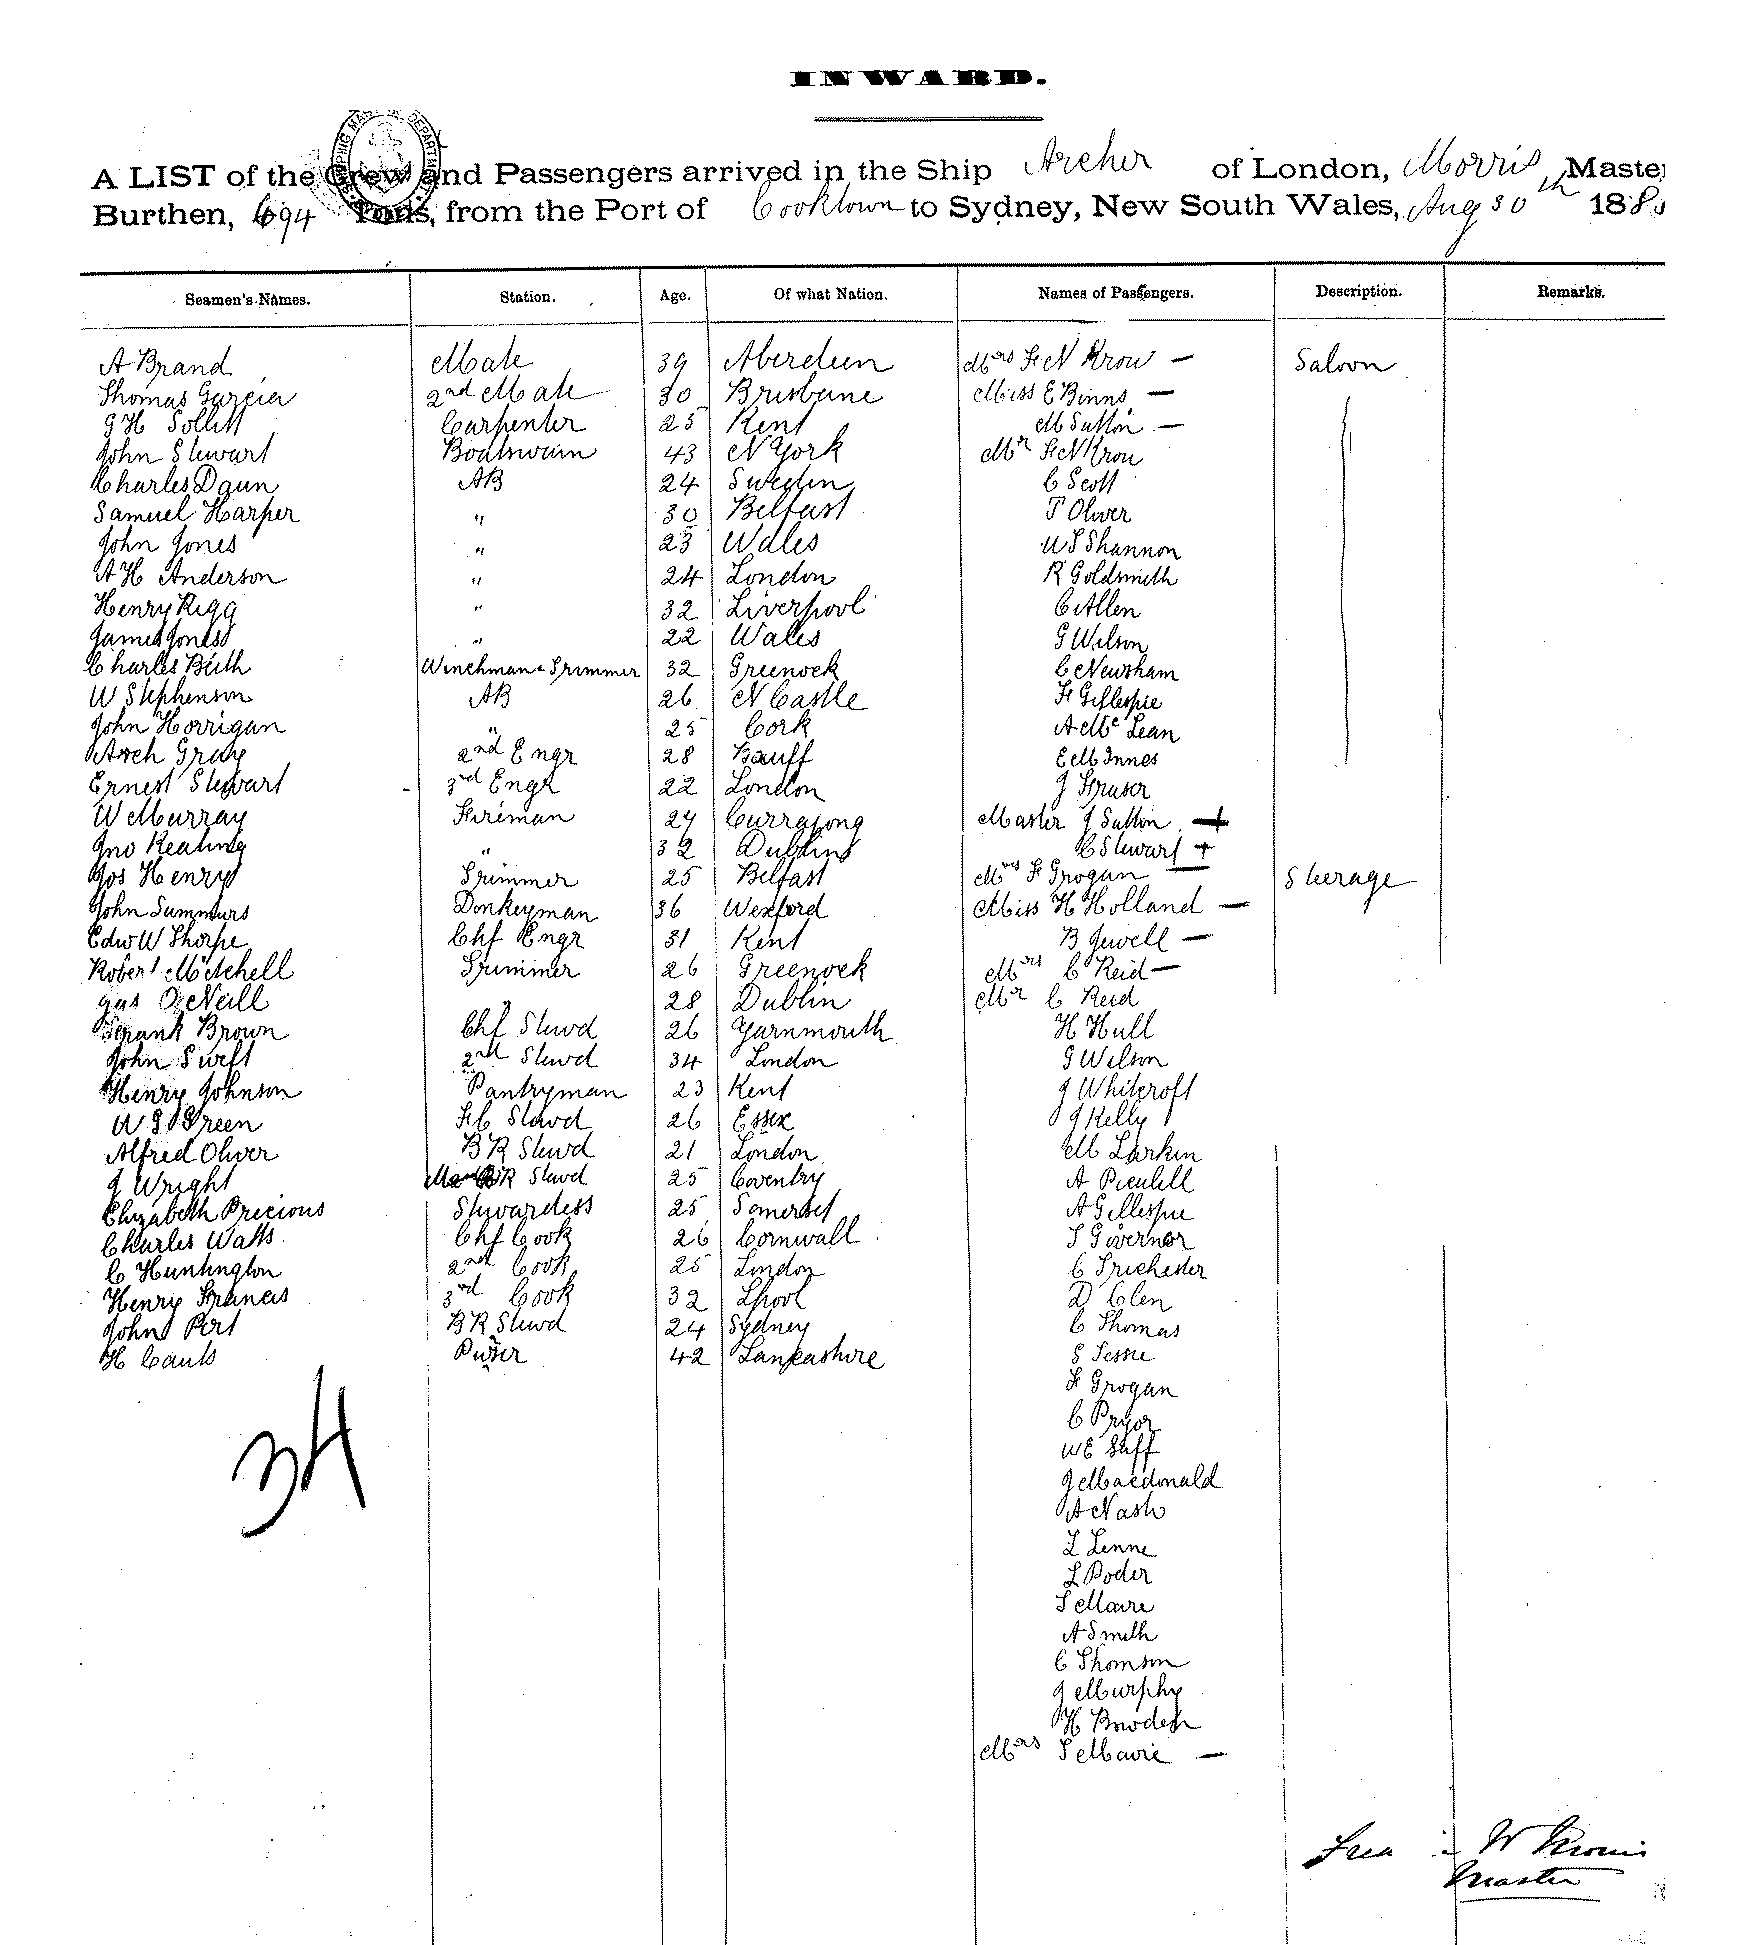 INWARD.
A LIST of the Crew and Passengers arrived in the Ship Archer of London, Morris, Master
Burthen, 694 Tons, from the Port of Cooktown to Sydney, New South Wales, Aug 30th 188
Seamen's Names. Station. Age. Of what Nation. Names of Passengers. Description. Remarks.
A Brand Mate 39 Aberdeen Mrs F N Krow — Saloon
Thomas Garcia 2nd Mate 30 Brisbane Miss E Binns —
G H Sollitt Carpenter 25 Kent M Sutton —
John Stewart Boatswain 43 N York Mr F N Krow
Charles Daun AB 24 Sweden C Scott
Samuel Harper " 30 Belfast T Oliver
John Jones " 23 Wales W S Shannon
A H Anderson " 24 London R Goldsmith
Henry Rigg " 32 Liverpool C Allen
James Jones " 22 Wales G Wilson
Charles Bith Winchman & Trimmer 32 Greenock C Newsham
W Stephenson AB 26 N Castle F Gillespie
John Horrigan " 25 Cork A Mc Lean
Arch Gray 2nd Engr 28 Banff E M Innes
Ernest Stewart 3rd Engr 22 London J Fraser
W Murray Fireman 27 Currajong Master J Sutton +
Jno Keating " 32 Dublin C Stewart +
Jos Henry Trimmer 25 Belfast Mrs F Grogan — Steerage
John Summurs Donkeyman 36 Wexford Miss H Holland —
Edw W Thorpe Chf Engr 31 Kent B Jewell —
Robert Mitchell Trimmer 26 Greenock Mrs C Reid —
Jas O'Neill " 28 Dublin Mr C Reid
Frank Brown Chf Stewd 26 Yarmouth H Hull
John Swift 2nd Stewd 34 London G Wilson
Henry Johnson Pantryman 23 Kent J Whitcroft
W G Green F C Stewd 26 Essex J Kelly
Alfred Oliver B R Stewd 21 London M Larkin
J Wright R Stewd 25 Coventry A
Elizabeth Precious Stewardess 25 Somerset A Gillespie
Charles Watts Chf Cook 26 Cornwall T Governor
C Huntington 2nd Cook 25 London C Trichester
Henry Francis 3rd Cook 32 Lpool D Clen
John Pert B R Stewd 24 Sydney C Thomas
H Cauls Purser 42 Lancashire S Tessie
F Grogan
C Pryor
34
W E Saff
J Macdonald
A Nash
L Lenne
L Poder
T Mavre
A Smith
C Thomson
J Murphy
H Bowden
Mrs T Mavie —
W Morris
Master